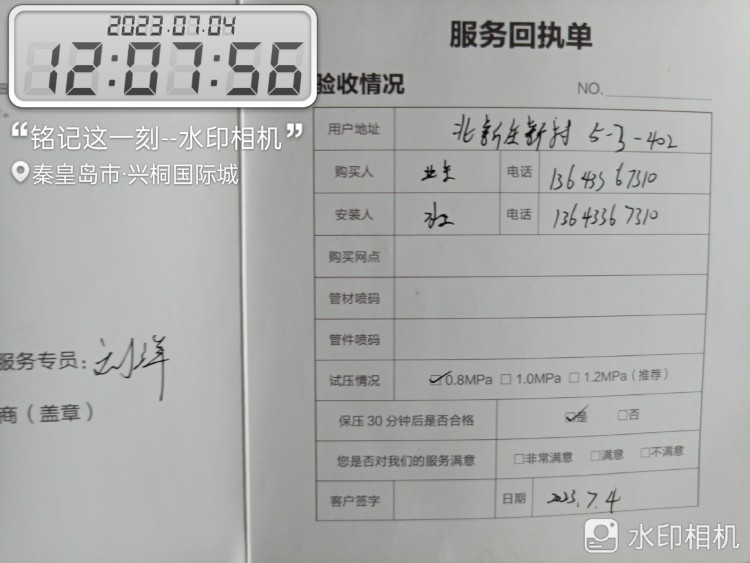 2023.07.04
12:07:56
“铭记这一刻--水印相机”
秦皇岛市·兴桐国际城
服务专员：刘洋
商（盖章）
服务回执单
验收情况 NO.
用户地址 北新庄新村 5-3-402
购买人 业主 电话 13643367310
安装人 水工 电话 13643367310
购买网点
管材喷码
管件喷码
试压情况 ☑0.8MPa □1.0MPa □1.2MPa（推荐）
保压30分钟后是否合格 ☑是 □否
您是否对我们的服务满意 □非常满意 □满意 □不满意
客户签字 日期 2023.7.4
水印相机